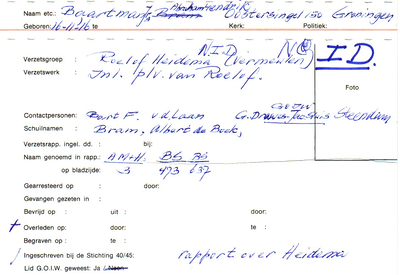 Naam etc.: Baartman, Abraham Hendrik Oostersingel 150 Groningen
Geboren: 16-11-'16 te Kerk: Politiek:
N.I.D. I.D.
Verzetsgroep : Roelof Heidema (Vermeulen)
Verzetswerk : Inl. plv. van Roelof.
Foto
Contactpersonen: Bart F. v.d. Laan G.
Schuilnaam : Bram, Albert de Boek,
Verzetsrapp. ingel. dd. : bij:
Naam genoemd in rapp.: AM-H. BS AS
op bladzijde: 3 473 637
Gearresteerd op : door:
Gevangen gezeten in :
Bevrijd op : uit : door:
† Overleden op : door: te :
Begraven op : te :
Ingeschreven bij de Stichting 40/45: rapport over Heidema
Lid G.O.I.W. geweest: Ja / Neen